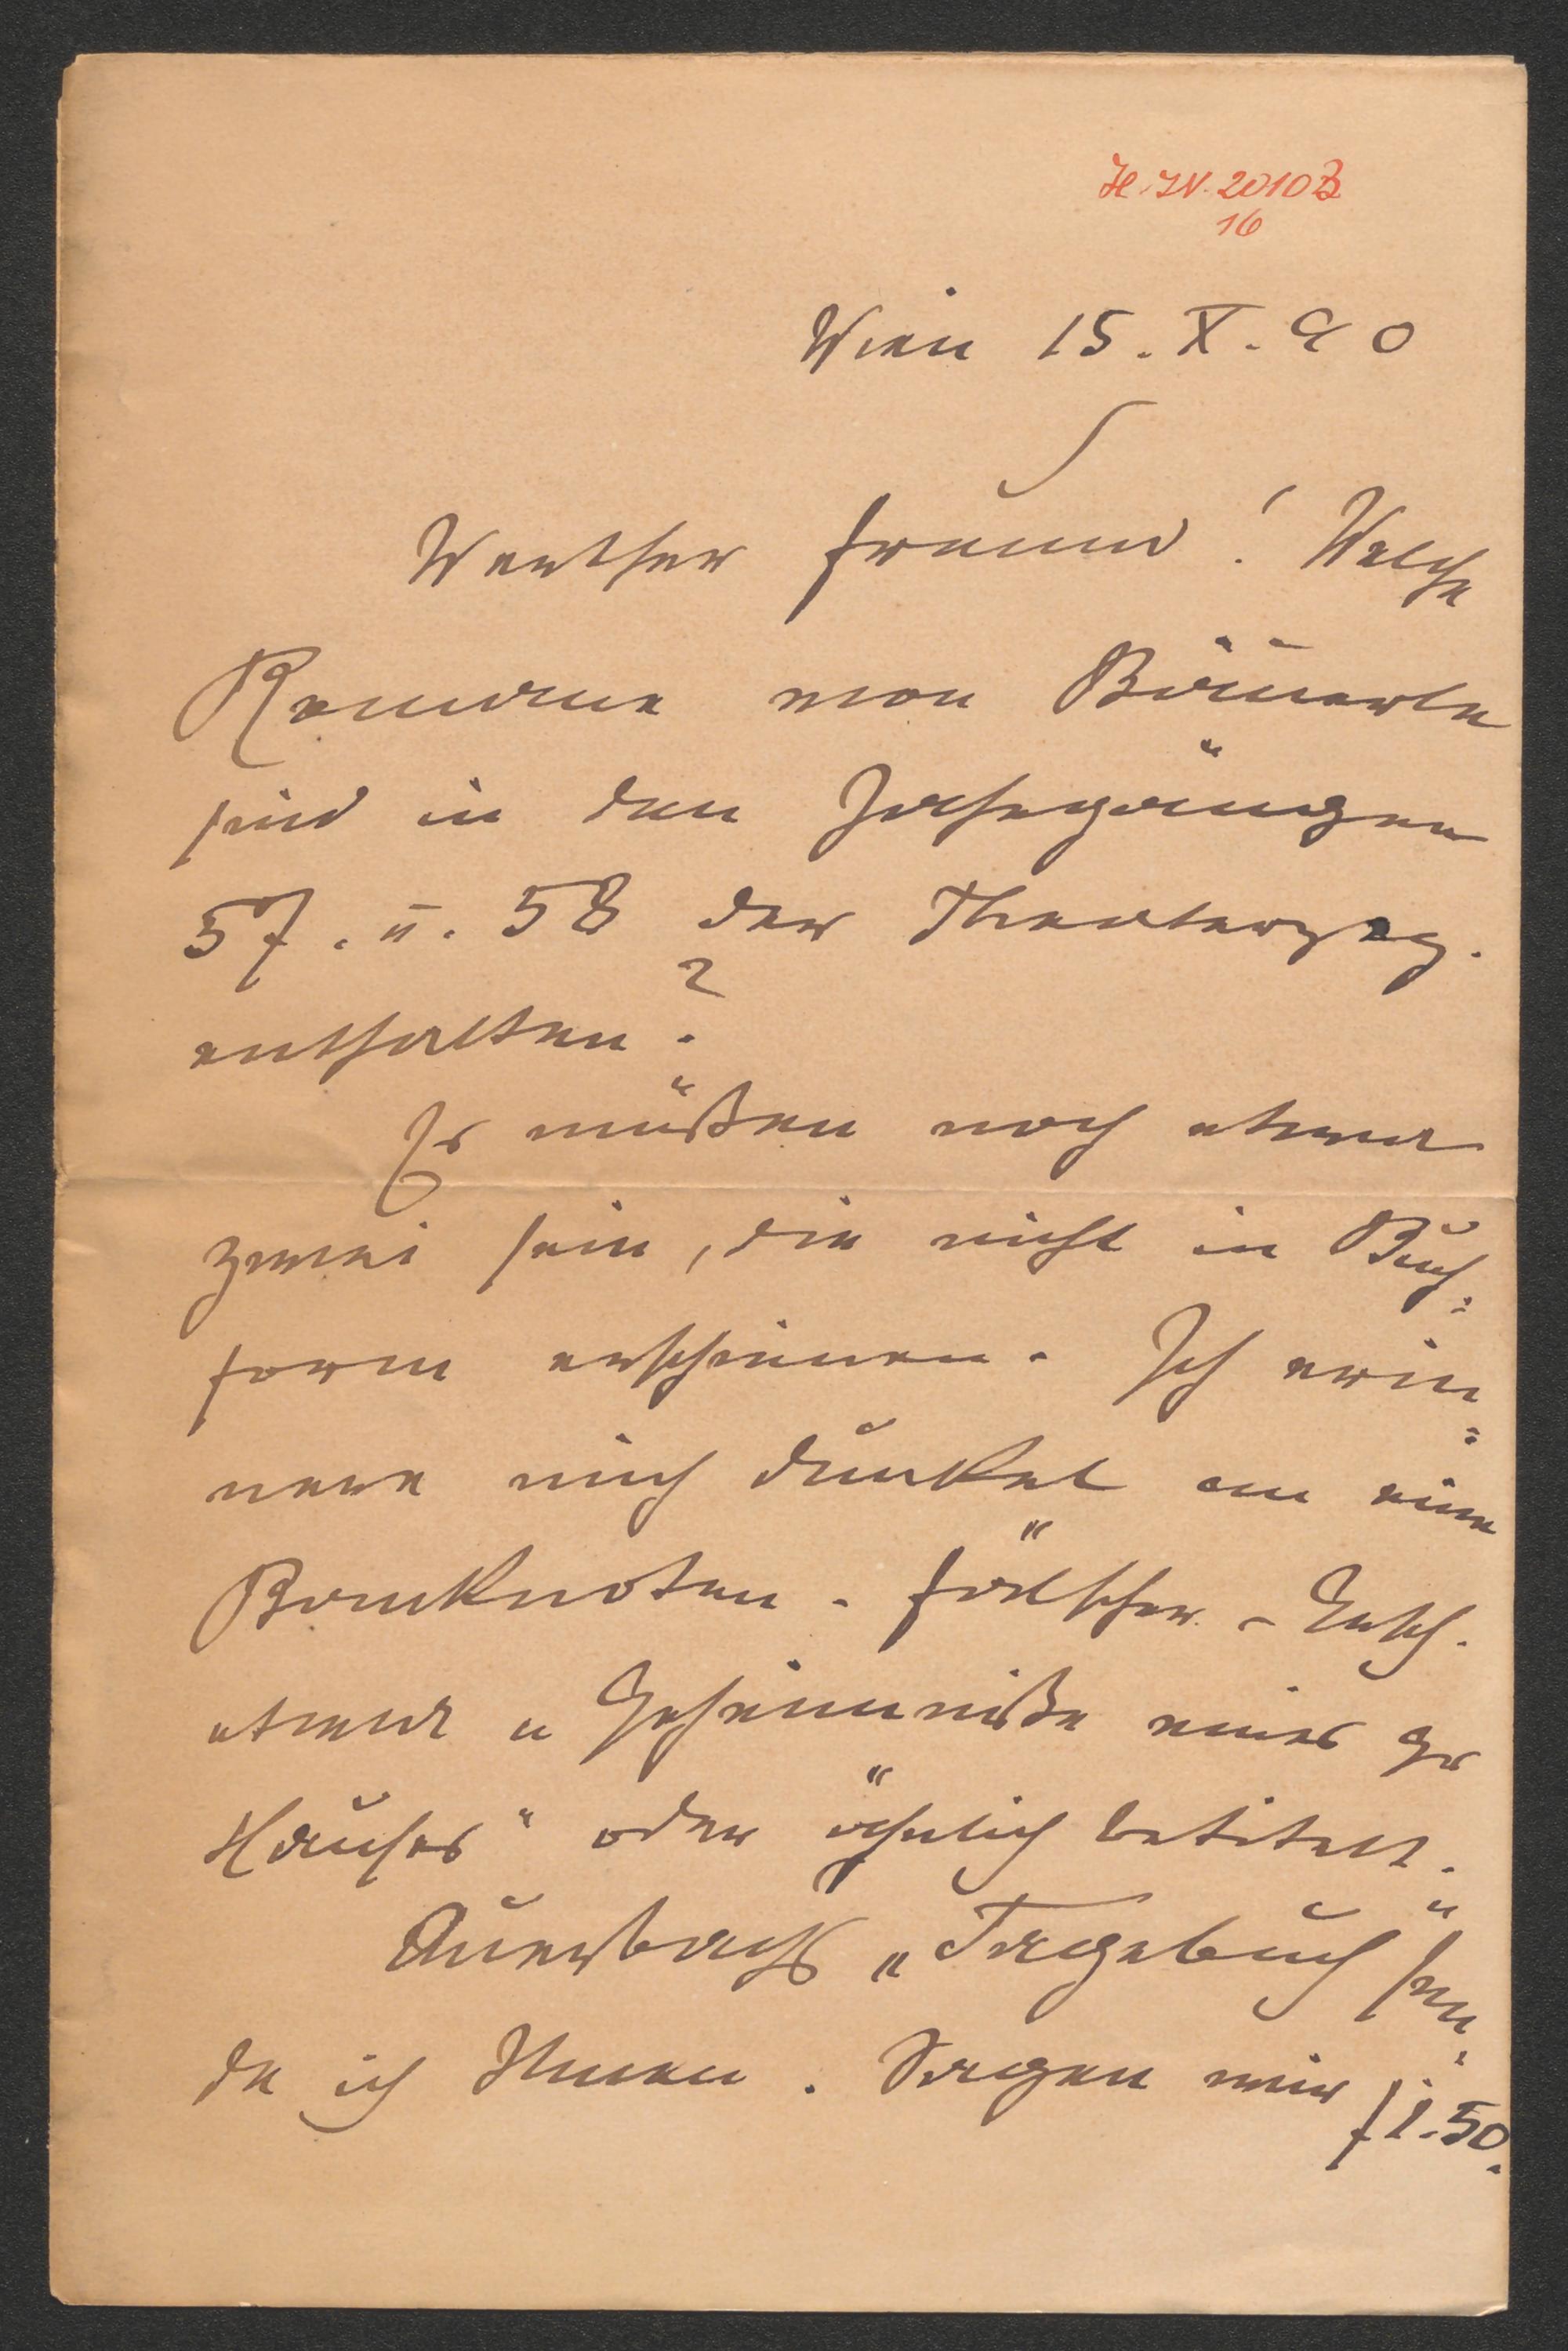 H.IN. 2010B
16
Wien 15. X. 90
Werther Freund! Welche
Romane von Bäuerle
sind in den Jahrgängen
57. u. 58 der Theaterztg.
enthalten?
Es müßen noch etwa
zwei sein, die nicht in Buch=
form erschienen. Ich erin=
nere mich dunkel an eine
Banknoten-Fälscher-Gesch.
etwa „Geheimniße eines
Hauses“ oder ähnlich betitelt.
Auerbachs „Tagebuch“ sen=
de ich Ihnen. Sagen wir f 1.50.